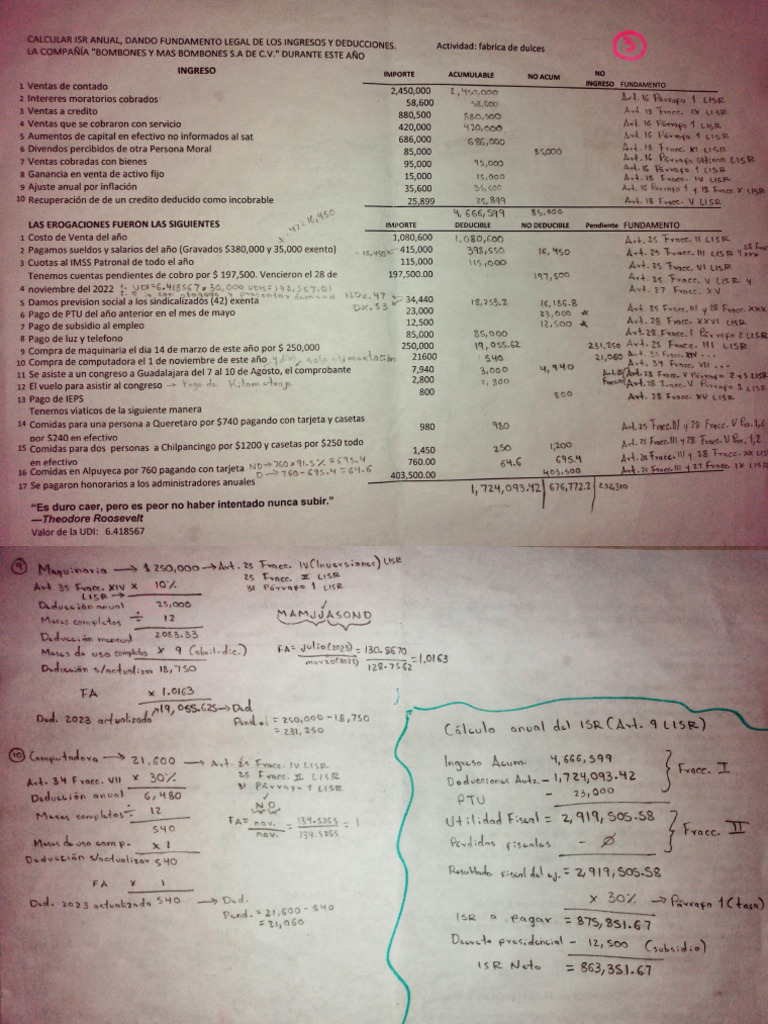 CALCULAR ISR ANUAL, DANDO FUNDAMENTO LEGAL DE LOS INGRESOS Y DEDUCCIONES. Actividad: fabrica de dulces 3
LA COMPAÑÍA "BOMBONES Y MAS BOMBONES S.A DE C.V." DURANTE ESTE AÑO
INGRESO IMPORTE ACUMULABLE NO ACUM NO INGRESO FUNDAMENTO
1 Ventas de contado 2,450,000 2,450,000 Art. 16 Párrafo 1 LISR
2 Intereres moratorios cobrados 58,600 58,600 Art. 18 Fracc. IX LISR
3 Ventas a credito 880,500 880,500 Art. 16 Párrafo 1 LISR
4 Ventas que se cobraron con servicio 420,000 420,000 Art. 16 Párrafo 1 LISR
5 Aumentos de capital en efectivo no informados al sat 686,000 686,000 Art. 18 Fracc. XI LISR
6 Divendos percibidos de otra Persona Moral 85,000 85,000 Art. 16 Párrafo último LISR
7 Ventas cobradas con bienes 95,000 95,000 Art. 16 Párrafo 1 LISR
8 Ganancia en venta de activo fijo 15,000 15,000 Art. 18 Fracc. IV LISR
9 Ajuste anual por inflación 35,600 35,600 Art. 16 Párrafo 1 y 18 Fracc X LISR
10 Recuperación de de un credito deducido como incobrable 25,899 25,899 Art. 18 Fracc. V LISR
4,666,599 85,000
LAS EROGACIONES FUERON LAS SIGUIENTES IMPORTE DEDUCIBLE NO DEDUCIBLE Pendiente FUNDAMENTO
1 Costo de Venta del año x .47 = 16,450 1,080,600 1,080,600 Art. 25 Fracc. II LISR
2 Pagamos sueldos y salarios del año (Gravados $380,000 y 35,000 exento) 415,000 - 16,450 398,550 16,450 Art. 25 Fracc. III LISR
3 Cuotas al IMSS Patronal de todo el año 115,000 115,000 Art. 25 Fracc. VI LISR
Tenemos cuentas pendientes de cobro por $ 197,500. Vencieron el 28 de 197,500.00 197,500 Art. 25 Fracc. V LISR y
4 noviembre del 2022 UDI=6.418567 x 30,000 Art. 27 Fracc. XV
5 Damos prevision social a los sindicalizados (42) exenta ND x .47 D x .53 34,440 18,253.2 16,186.8 Art. 25 Fracc. XI y 28 Fracc. XXX
6 Pago de PTU del año anterior en el mes de mayo 23,000 23,000 * Art. 28 Fracc. XXVI LISR
7 Pago de subsidio al empleo 12,500 12,500 * Art. 28 Fracc. I Párrafo 2 LISR
8 Pago de luz y telefono 85,000 85,000 Art. 25 Fracc. III LISR
9 Compra de maquinaria el dia 14 de marzo de este año por $ 250,000 250,000 19,055.62 231,250
10 Compra de computadora el 1 de noviembre de este año 21600 540 21,060 Art. 34 Fracc. VII ...
11 Se asiste a un congreso a Guadalajara del 7 al 10 de Agosto, el comprobante y dice solo alimentación 7,940 3,000 4,940
12 El vuelo para asistir al congreso → Pago de Kilometraje 2,800 2,800
13 Pago de IEPS 800 800 Art. 28 Fracc. XV LISR
Tenemos viaticos de la siguiente manera
14 Comidas para una persona a Queretaro por $740 pagando con tarjeta y casetas
por $240 en efectivo 980 980 Art. 25 Fracc. III y 28 Fracc. V Pár. 1,2
15 Comidas para dos personas a Chilpancingo por $1200 y casetas por $250 todo
en efectivo 1,450 250 1,200 Art. 25 Fracc. III y 28 Fracc. V Pár. 1,2
16 Comidas en Alpuyeca por 760 pagando con tarjeta ND → 760 x 91.5% = 695.4 D → 760 - 695.4 = 64.6 760.00 64.6 695.4 Art. 25 Fracc. III y 28 Fracc. XX LISR
17 Se pagaron honorarios a los administradores anuales 403,500.00 403,500 Art. 25 Fracc. III y 27 Fracc IX LISR
1,724,093.42 676,772.2 252,310
"Es duro caer, pero es peor no haber intentado nunca subir."
—Theodore Roosevelt
Valor de la UDI: 6.418567
9 Maquinaria → $250,000 → Art. 25 Fracc. IV (Inversiones) LISR
25 Fracc. II LISR
31 Párrafo 1 LISR
Art 35 Fracc. XIV LISR → x 10%
Deducción anual 25,000
Meses completos ÷ 12
Deducción mensual 2083.33
Meses de uso completos x 9 (abril-dic.)
Dedicción s/actualizar 18,750
MAMJJASOND
FA = julio(2023) / marzo(2023) = 130.8670 / 128.7562 = 1.0163
FA x 1.0163
Ded. 2023 actualizado 19,055.625 → Ded
Pend. = 250,000 - 18,750
= 231,250
10 Computadora → 21,600 → Art. 25 Fracc. IV LISR
25 Fracc. II LISR
31 Párrafo 1 LISR
Art. 34 Fracc. VII x 30%
Deducción anual 6,480
Meses completos ÷ 12
540
Meses de uso comp. x 1
Deducción s/actualizar 540
ND
FA = nov. / nov. = 134.5255 / 134.5255 = 1
FA x 1
Ded. 2023 actualizado 540 → Ded.
Pend. = 21,600 - 540
= 21,060
Cálculo anual del ISR (Art. 9 LISR)
Ingreso Acum. 4,666,599
Deducciones Autz. - 1,724,093.42 Fracc. I
PTU - 23,000
Utilidad Fiscal = 2,919,505.58
Pérdidas fiscales - Ø Fracc. II
Resultado fiscal del ej. = 2,919,505.58
x 30% → Párrafo 1 (tasa)
ISR a pagar = 875,851.67
Decreto presidencial - 12,500 (subsidio)
ISR Neto = 863,351.67